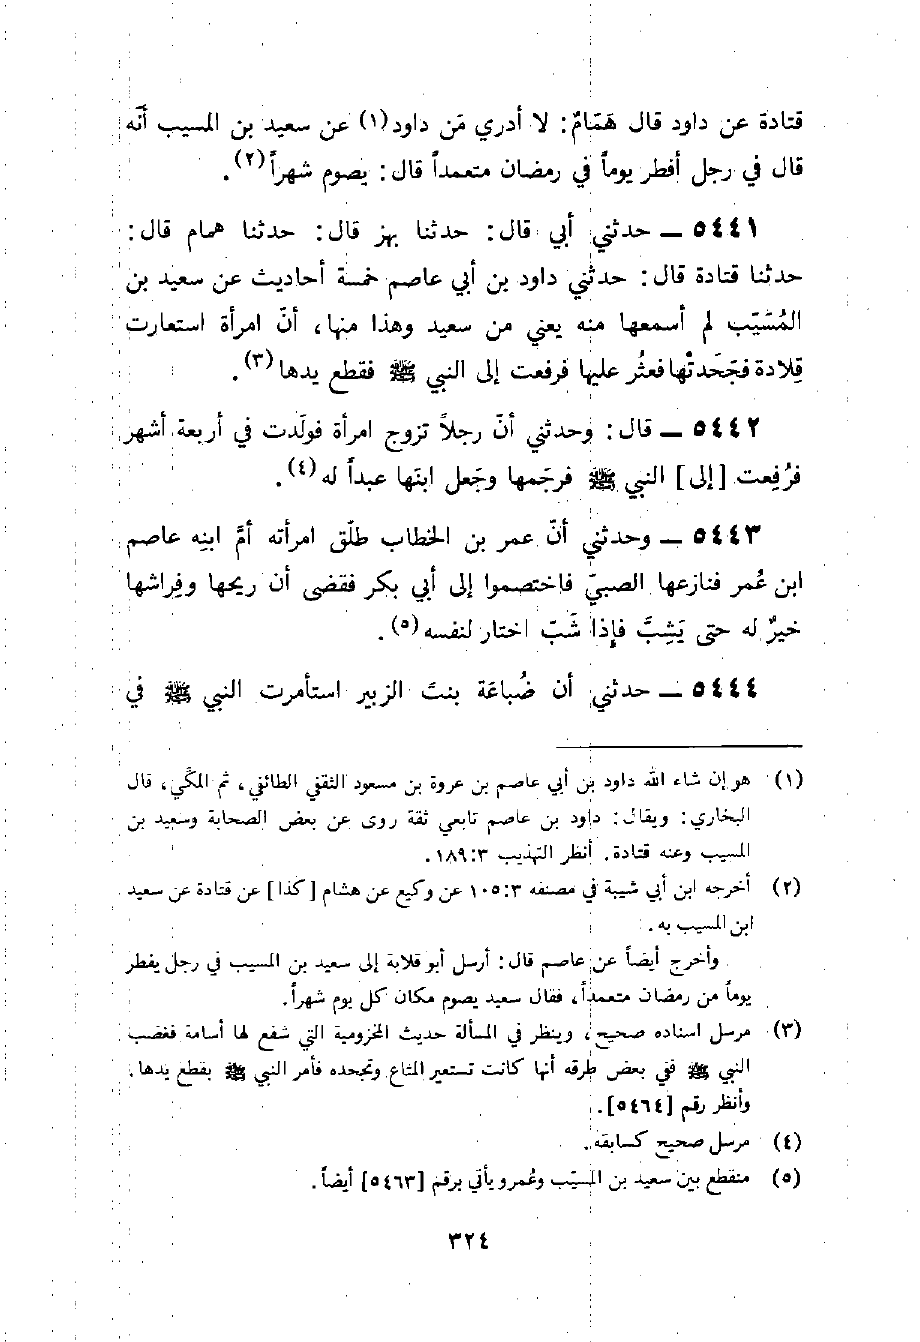 قتادة عن داود قال هَمّامٌ: لا أدري مَن داود(١) عن سعيد بن المسيب أنّه
قال في رجل أفطر يوماً في رمضان متعمداً قال: يصوم شهراً(٢).
٥٤٤١ ـ حدثني أبي قال: حدثنا بهز قال: حدثنا همام قال:
حدثنا قتادة قال: حدثني داود بن أبي عاصم خمسة أحاديث عن سعيد بن
المُسَيّب لم أسمعها منه يعني من سعيد وهذا منها، أنّ امرأة استعارت
قِلادة فجَحَدتْها فعثُر عليها فرفعت إلى النبي ﷺ فقطع يدها(٣).
٥٤٤٢ ـ قال: وحدثني أنّ رجلاً تزوج امرأة فولَدت في أربعة أشهر
فرُفِعت [إلى] النبي ﷺ فرجَمها وجَعل ابنَها عبداً له(٤).
٥٤٤٣ ـ وحدثني أنّ عمر بن الخطاب طلّق امرأته أمَّ ابنِه عاصم
ابن عُمر فنازعها الصبيّ فاختصموا إلى أبي بكر فقضى أن ريحها وفِراشها
خيرٌ له حتى يَشِبَّ فإذا شَبّ اختار لنفسه(٥).
٥٤٤٤ ـ حدثني أن ضُباعَة بنتَ الزبير استأمرت النبي ﷺ في
(١) هو إن شاء الله داود بن أبي عاصم بن عروة بن مسعود الثقفي الطائفي، ثم المكّي، قال
البخاري: ويقال: داود بن عاصم تابعي ثقة روى عن بعض الصحابة وسعيد بن
المسيب وعنه قتادة. أنظر التهذيب ١٨٩:٣.
(٢) أخرجه ابن أبي شيبة في مصنفه ١٠٥:٣ عن وكيع عن هشام [كذا] عن قتادة عن سعيد
ابن المسيب به.
وأخرج أيضاً عن عاصم قال: أرسل أبو قلابة إلى سعيد بن المسيب في رجل يفطر
يوماً من رمضان متعمداً، فقال سعيد يصوم مكان كل يوم شهراً.
(٣) مرسل اسناده صحيح، وينظر في المسألة حديث المخزومية التي شفع لها أسامة فغضب
النبي ﷺ ففي بعض طرقه أنها كانت تستعير المتاع وتجحده فأمر النبي ﷺ بقطع يدها.
وأنظر رقم [٥٤٦٤].
(٤) مرسل صحيح كسابقه.
(٥) منقطع بين سعيد بن المسيّب وعُمر ويأتي برقم [٥٤٦٣] أيضاً.
٣٢٤